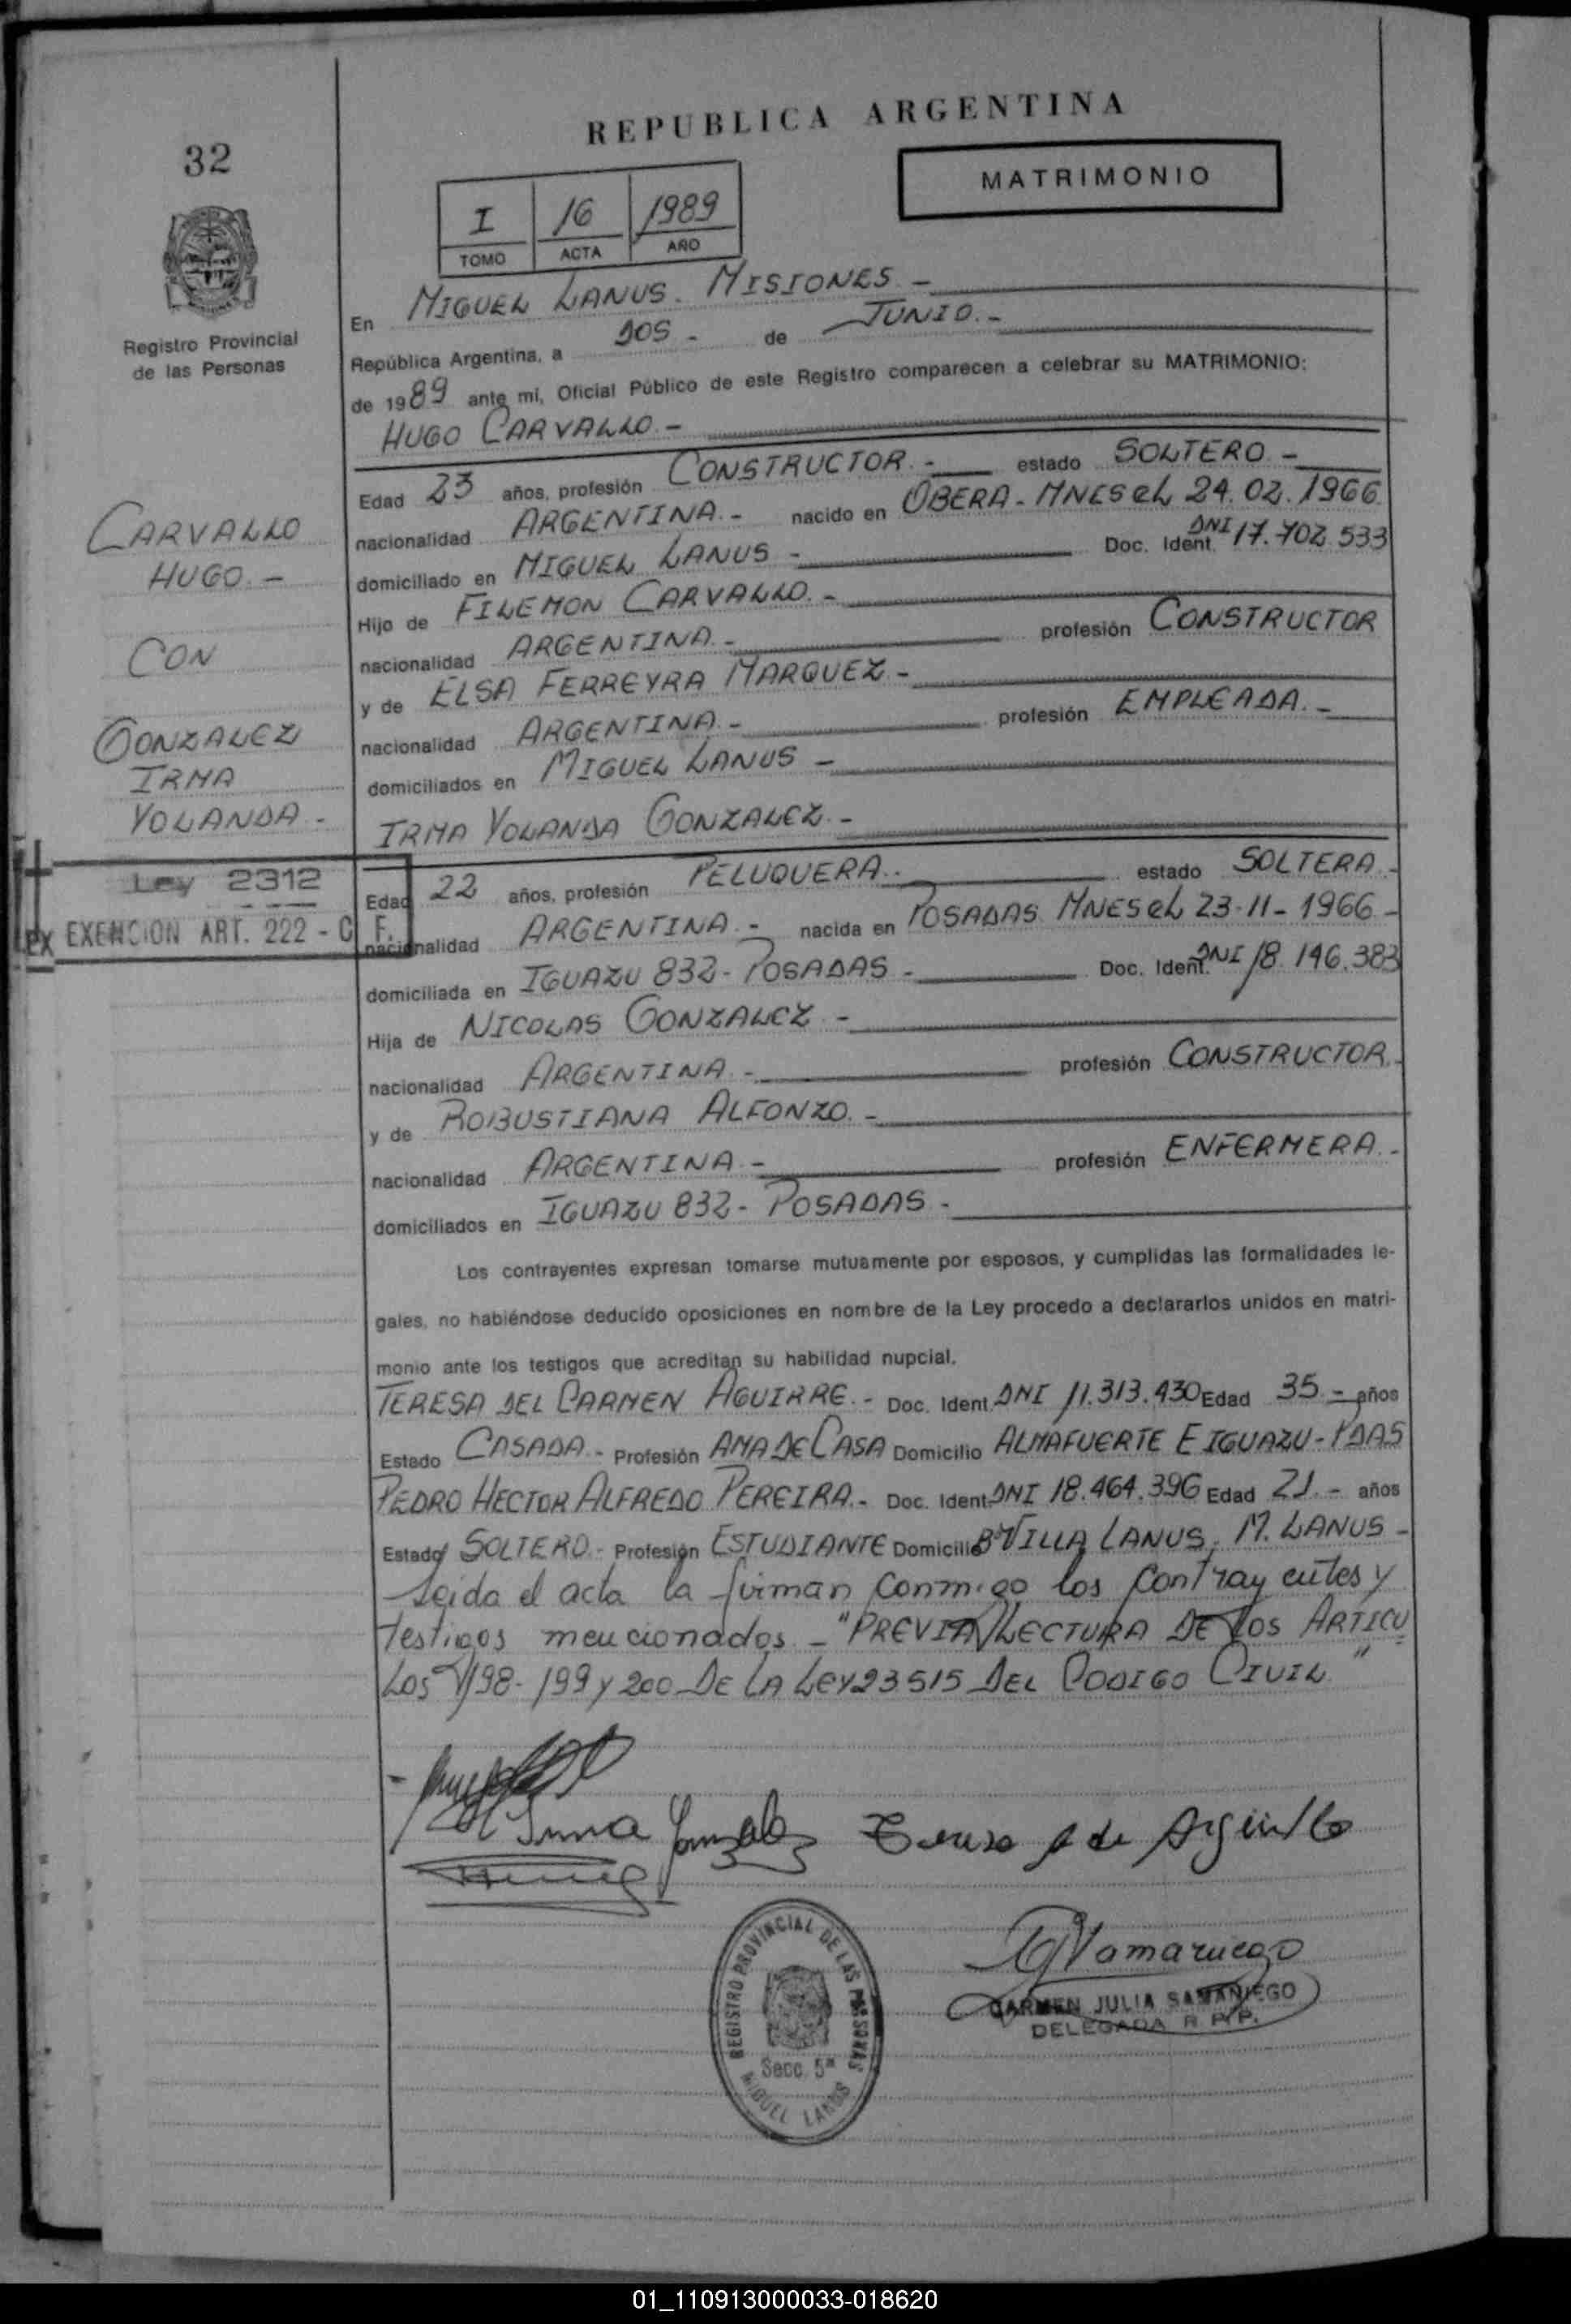 REPUBLICA ARGENTINA
32
MATRIMONIO
I 16 1989
TOMO ACTA AÑO
Registro Provincial
de las Personas
En MIGUEL LANUS. MISIONES.-
República Argentina, a DOS - de JUNIO.-
de 1989 ante mi, Oficial Público de este Registro comparecen a celebrar su MATRIMONIO:
HUGO CARVALLO.-
Edad 23 años, profesión CONSTRUCTOR.- estado SOLTERO.-
nacionalidad ARGENTINA.- nacido en OBERA-MNES el 24.02.1966
domiciliado en MIGUEL LANUS - Doc. Ident. DNI 17.702.533
Hijo de FILEMON CARVALLO.-
nacionalidad ARGENTINA.- profesión CONSTRUCTOR
y de ELSA FERREYRA MARQUEZ-
nacionalidad ARGENTINA.- profesión EMPLEADA.-
domiciliados en MIGUEL LANUS -
CARVALLO
HUGO.-
CON
GONZALEZ
IRMA
YOLANDA.-
Ley 2312
EXENCION ART. 222 - C. F.
IRMA YOLANDA GONZALEZ.-
Edad 22 años, profesión PELUQUERA.- estado SOLTERA.-
nacionalidad ARGENTINA.- nacida en POSADAS MNES el 23-11-1966-
domiciliada en IGUAZU 832- POSADAS- Doc. Ident. DNI 18.146.383
Hija de NICOLAS GONZALEZ -
nacionalidad ARGENTINA.- profesión CONSTRUCTOR.-
y de ROBUSTIANA ALFONZO.-
nacionalidad ARGENTINA.- profesión ENFERMERA.-
domiciliados en IGUAZU 832- POSADAS-
Los contrayentes expresan tomarse mutuamente por esposos, y cumplidas las formalidades le-
gales, no habiéndose deducido oposiciones en nombre de la Ley procedo a declararlos unidos en matri-
monio ante los testigos que acreditan su habilidad nupcial.
TERESA DEL CARMEN AGUIRRE.- Doc. Ident DNI 11.313.430 Edad 35.- años
Estado CASADA.- Profesión AMA DE CASA Domicilio ALMAFUERTE E IGUAZU-PDAS
PEDRO HECTOR ALFREDO PEREIRA.- Doc. Ident DNI 18.464.396 Edad 21.- años
Estado SOLTERO.- Profesión ESTUDIANTE Domicilio Bº VILLA LANUS, M. LANUS-
Leida el acta la firman conmigo los contrayentes y
testigos mencionados.-"PREVIA LECTURA DE LOS ARTICU
LOS 198-199 y 200 DE LA LEY 23515 DEL CODIGO CIVIL"
Irma Gonzalez
REGISTRO PROVINCIAL DE LAS PERSONAS
Secc. 5ª
MIGUEL LANUS
CARMEN JULIA SAMANIEGO
DELEGADA R. P. P.
01_110913000033-018620